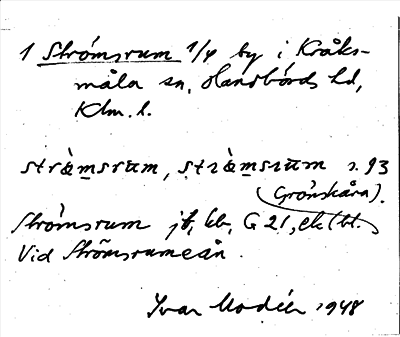 1 Strömsrum 1/4 by i Kråks-
måla sn, Handbörds hd,
Klm. l.
stràmsrum, stràmsrum s. 93
(Grönskåra).
Strömsrum jb, kb, G 21,
Vid Strömsrumeån.
Ivar Modéer 1948